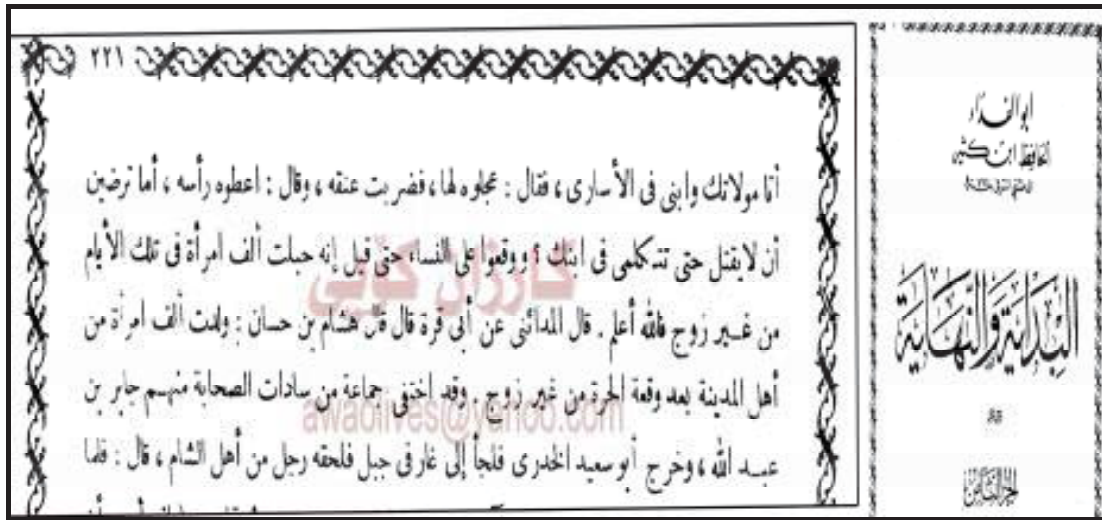 ٢٢١
أنا مولاتك وابنى فى الأسارى ، فقال : عجلوه لها ، فضربت عنقه ، وقال : اعطوه رأسه ، أما ترضين
أن لا يقتل حتى تتكلمى فى ابنك ؟ ووقعوا على النساء حتى قيل إنه حبلت ألف امرأة فى تلك الأيام
من غير زوج فالله أعلم . قال المدائنى عن أبى قرة قال قال هشام بن حسان : ولدت ألف امرأة من
أهل المدينة بعد وقعة الحرة من غير زوج . وقد اختفى جماعة من سادات الصحابة منهم جابر بن
عبد الله ، وخرج أبو سعيد الخدرى فلجأ إلى غار فى جبل فلحقه رجل من أهل الشام ، قال : فلما
awaolives@yahoo.com
ابو الفداء
الحافظ ابن كثير
البداية والنهاية
الجزء الثامن